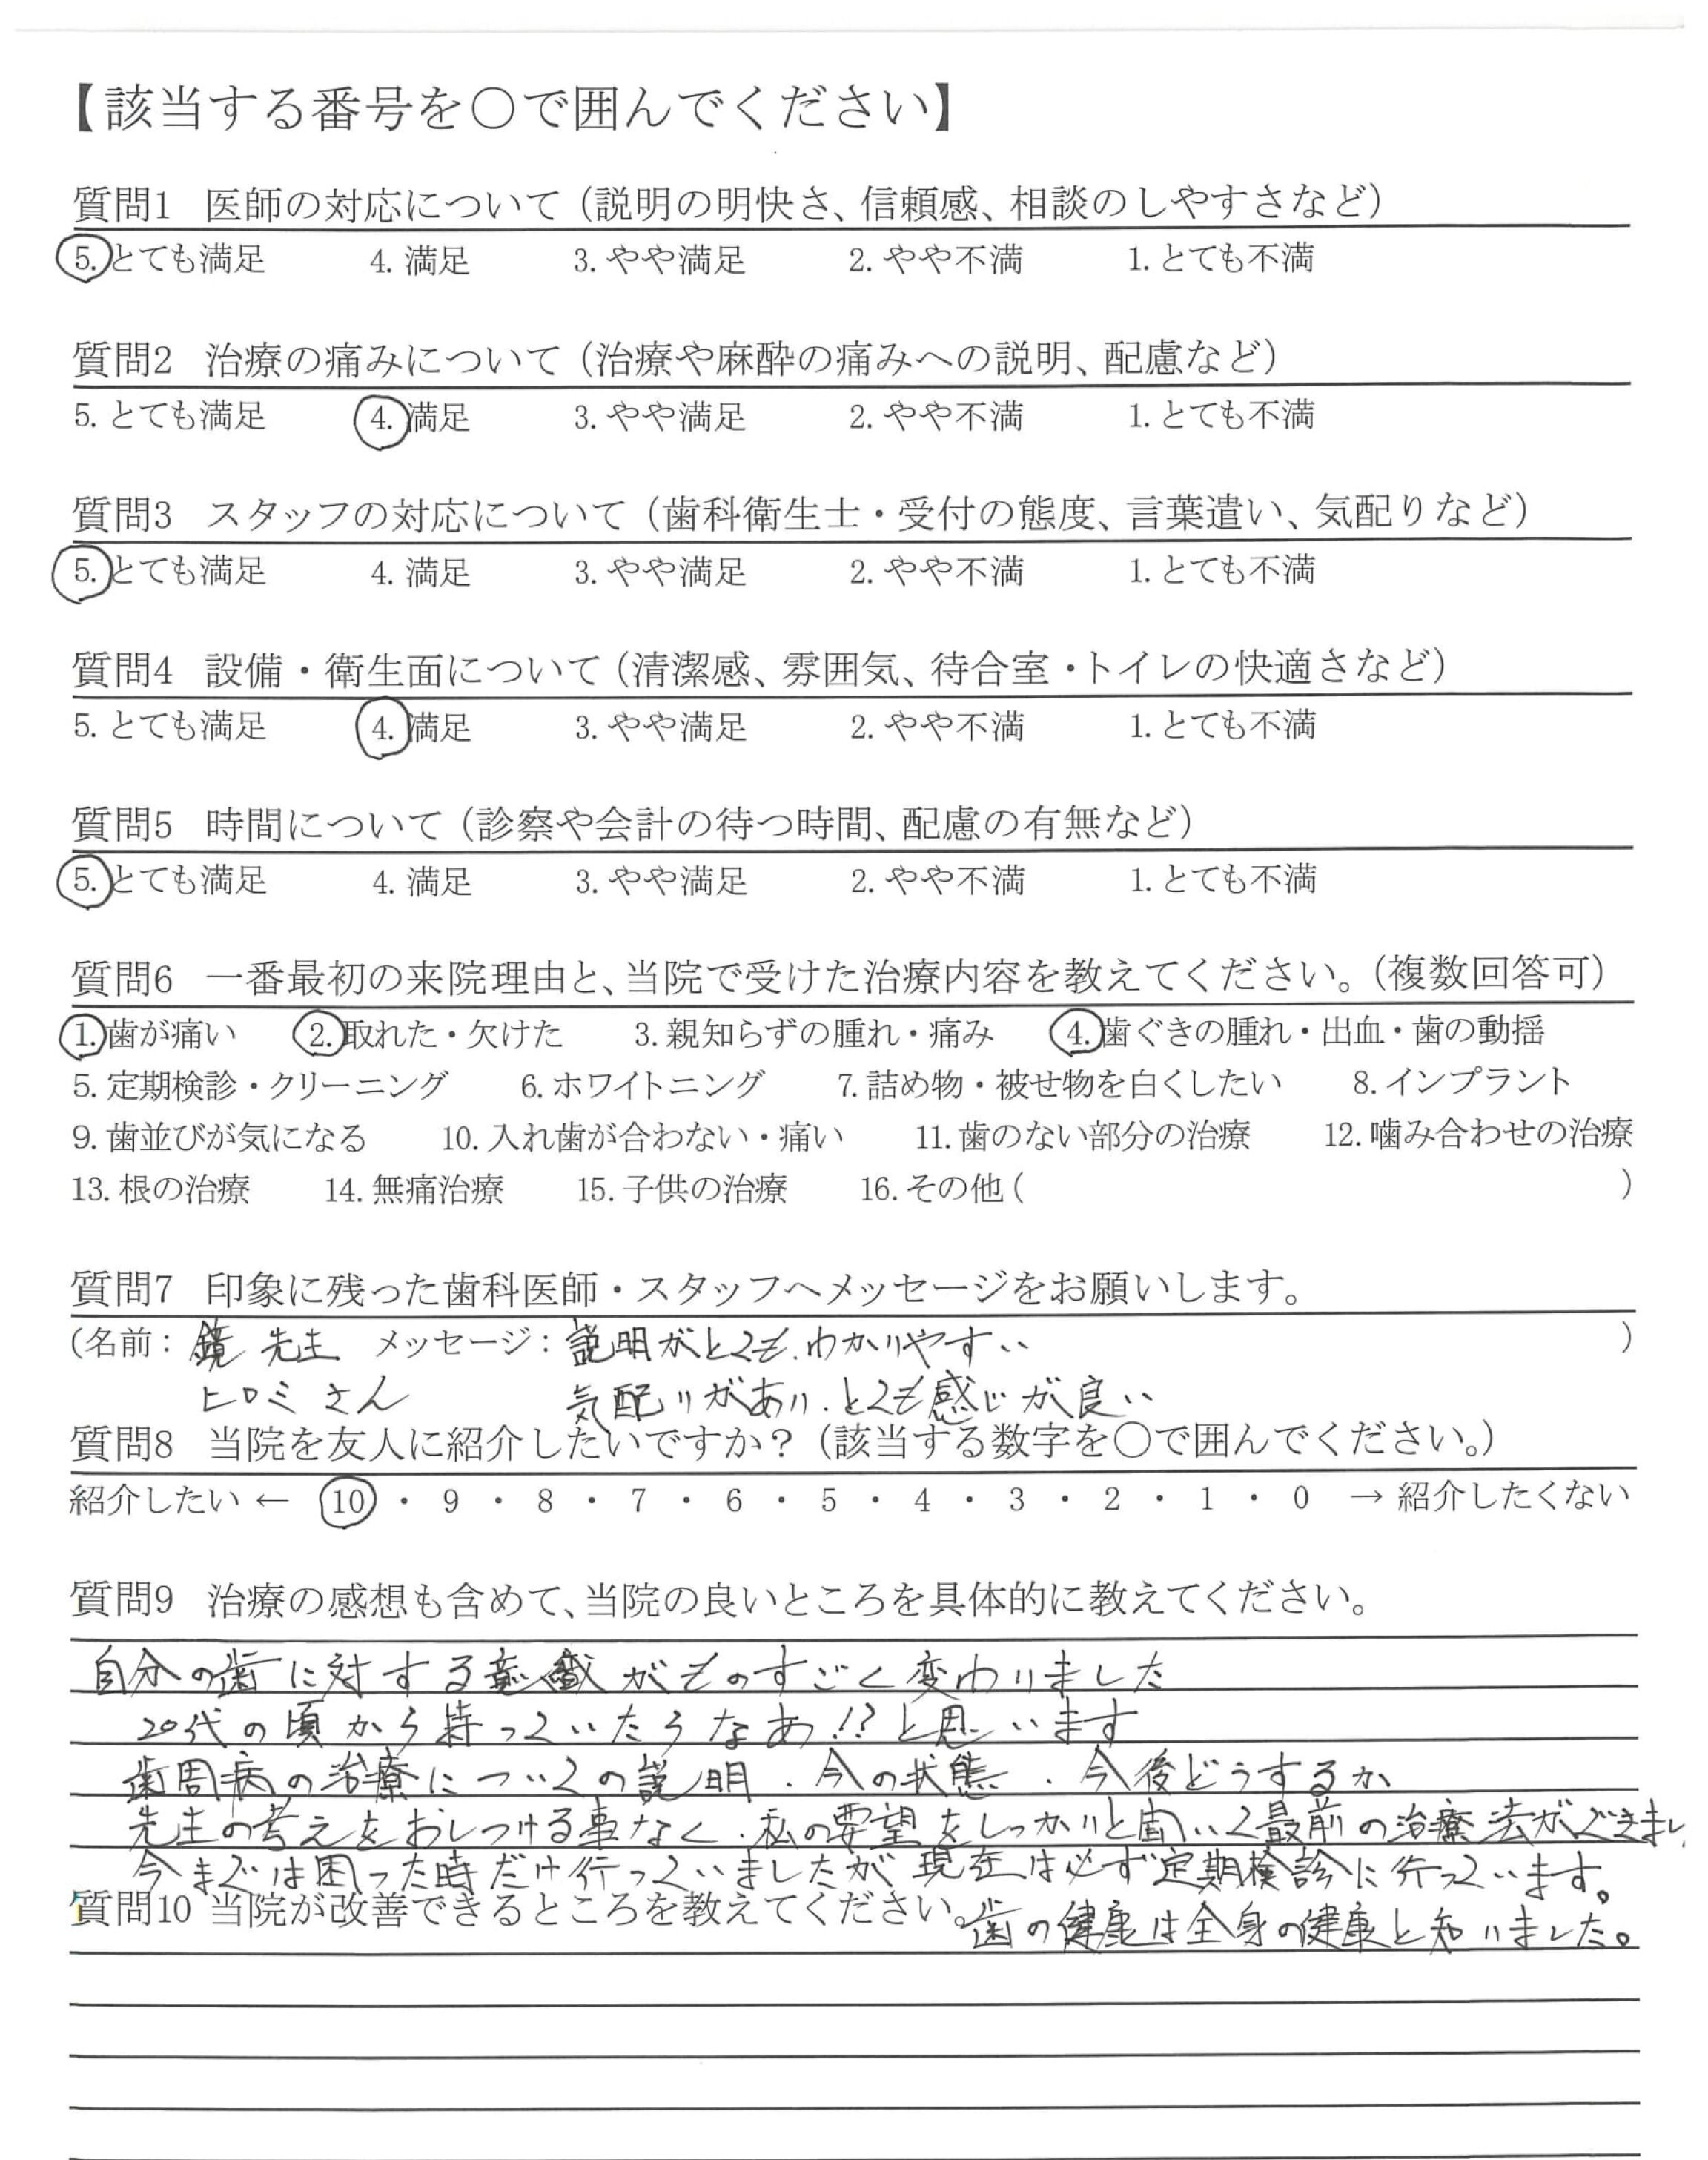 【該当する番号を〇で囲んでください】
質問1 医師の対応について（説明の明快さ、信頼感、相談のしやすさなど）
5. とても満足 4. 満足 3. やや満足 2. やや不満 1. とても不満
質問2 治療の痛みについて（治療や麻酔の痛みへの説明、配慮など）
5. とても満足 4. 満足 3. やや満足 2. やや不満 1. とても不満
質問3 スタッフの対応について（歯科衛生士・受付の態度、言葉遣い、気配りなど）
5. とても満足 4. 満足 3. やや満足 2. やや不満 1. とても不満
質問4 設備・衛生面について（清潔感、雰囲気、待合室・トイレの快適さなど）
5. とても満足 4. 満足 3. やや満足 2. やや不満 1. とても不満
質問5 時間について（診察や会計の待つ時間、配慮の有無など）
5. とても満足 4. 満足 3. やや満足 2. やや不満 1. とても不満
質問6 一番最初の来院理由と、当院で受けた治療内容を教えてください。（複数回答可）
1. 歯が痛い 2. 取れた・欠けた 3. 親知らずの腫れ・痛み 4. 歯ぐきの腫れ・出血・歯の動揺
5. 定期検診・クリーニング 6. ホワイトニング 7. 詰め物・被せ物を白くしたい 8. インプラント
9. 歯並びが気になる 10. 入れ歯が合わない・痛い 11. 歯のない部分の治療 12. 噛み合わせの治療
13. 根の治療 14. 無痛治療 15. 子供の治療 16. その他（ ）
質問7 印象に残った歯科医師・スタッフへメッセージをお願いします。
（名前：鏡 先生 メッセージ：説明がとても、わかりやすい ）
ヒロミさん 気配りがあり、とても感じが良い
質問8 当院を友人に紹介したいですか？（該当する数字を〇で囲んでください。）
紹介したい ← 10 ・ 9 ・ 8 ・ 7 ・ 6 ・ 5 ・ 4 ・ 3 ・ 2 ・ 1 ・ 0 → 紹介したくない
質問9 治療の感想も含めて、当院の良いところを具体的に教えてください。
自分の歯に対する意識がものすごく変わりました
20代の頃から持っていたらなあ!?と思います
歯周病の治療についての説明、今の状態、今後どうするか
先生の考えをおしつける事なく、私の要望をしっかりと聞いて最前の治療法ができまし
今までは困った時だけ行っていましたが現在は必ず定期検診に行っています。
質問10 当院が改善できるところを教えてください。
歯の健康は全身の健康と知りました。